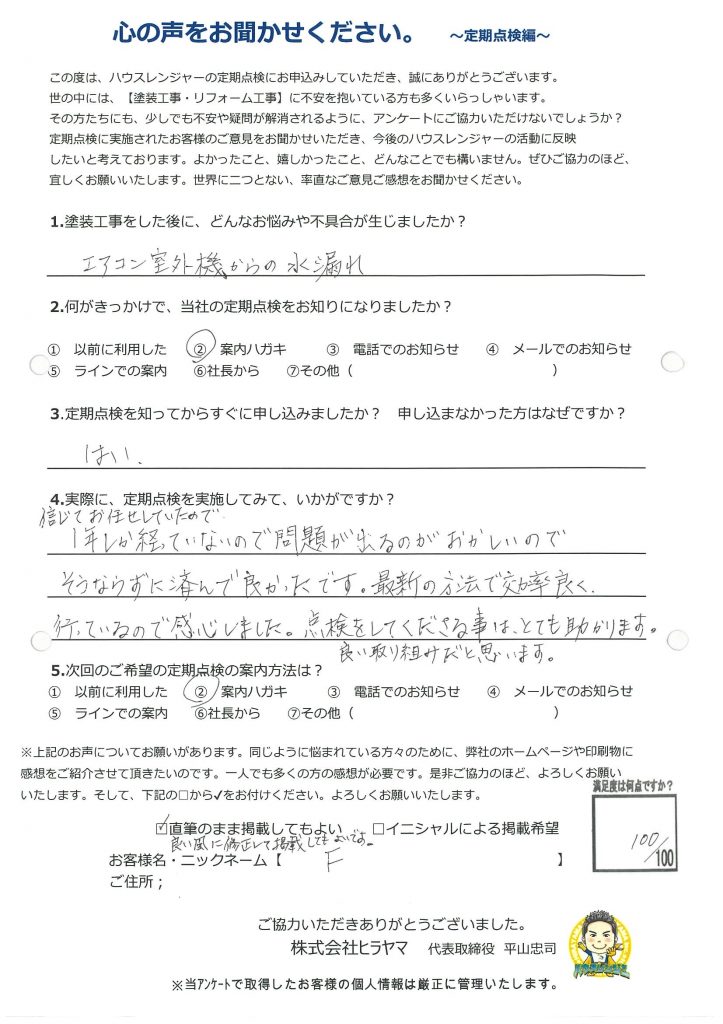 心の声をお聞かせください。　～定期点検編～
この度は、ハウスレンジャーの定期点検にお申込みしていただき、誠にありがとうございます。
世の中には、【塗装工事・リフォーム工事】に不安を抱いている方も多くいらっしゃいます。
その方たちにも、少しでも不安や疑問が解消されるように、アンケートにご協力いただけないでしょうか？
定期点検に実施されたお客様のご意見をお聞かせいただき、今後のハウスレンジャーの活動に反映
したいと考えております。よかったこと、嬉しかったこと、どんなことでも構いません。ぜひご協力のほど、
宜しくお願いいたします。世界に二つとない、率直なご意見ご感想をお聞かせください。
1.塗装工事をした後に、どんなお悩みや不具合が生じましたか？
エアコン室外機からの水漏れ
2.何がきっかけで、当社の定期点検をお知りになりましたか？
①　以前に利用した　②　案内ハガキ　③　電話でのお知らせ　④　メールでのお知らせ
⑤　ラインでの案内　⑥社長から　⑦その他（　）
3.定期点検を知ってからすぐに申し込みましたか？　申し込まなかった方はなぜですか？
はい.
4.実際に、定期点検を実施してみて、いかがですか？
信じてお任せしていたので.
1年しか経ていないので問題が出るのがおかしいので
そうならずに済んで良かったです。最新の方法で効率良く.
行っているので感心しました。点検をしてくださる事は、とても助かります。
良い取り組みだと思います。
5.次回のご希望の定期点検の案内方法は？
①　以前に利用した　②　案内ハガキ　③　電話でのお知らせ　④　メールでのお知らせ
⑤　ラインでの案内　⑥社長から　⑦その他（　）
※上記のお声についてお願いがあります。同じように悩まれている方々のために、弊社のホームページや印刷物に
感想をご紹介させて頂きたいのです。一人でも多くの方の感想が必要です。是非ご協力のほど、よろしくお願い
いたします。そして、下記の□から✓をお付けください。よろしくお願いいたします。
満足度は何点ですか？
100/100
☑直筆のまま掲載してもよい　□イニシャルによる掲載希望
良い風に修正して掲載してもよいです。
お客様名・ニックネーム【　F　】
ご住所；
ご協力いただきありがとうございました。
株式会社ヒラヤマ　代表取締役　平山忠司
※当アンケートで取得したお客様の個人情報は厳正に管理いたします。